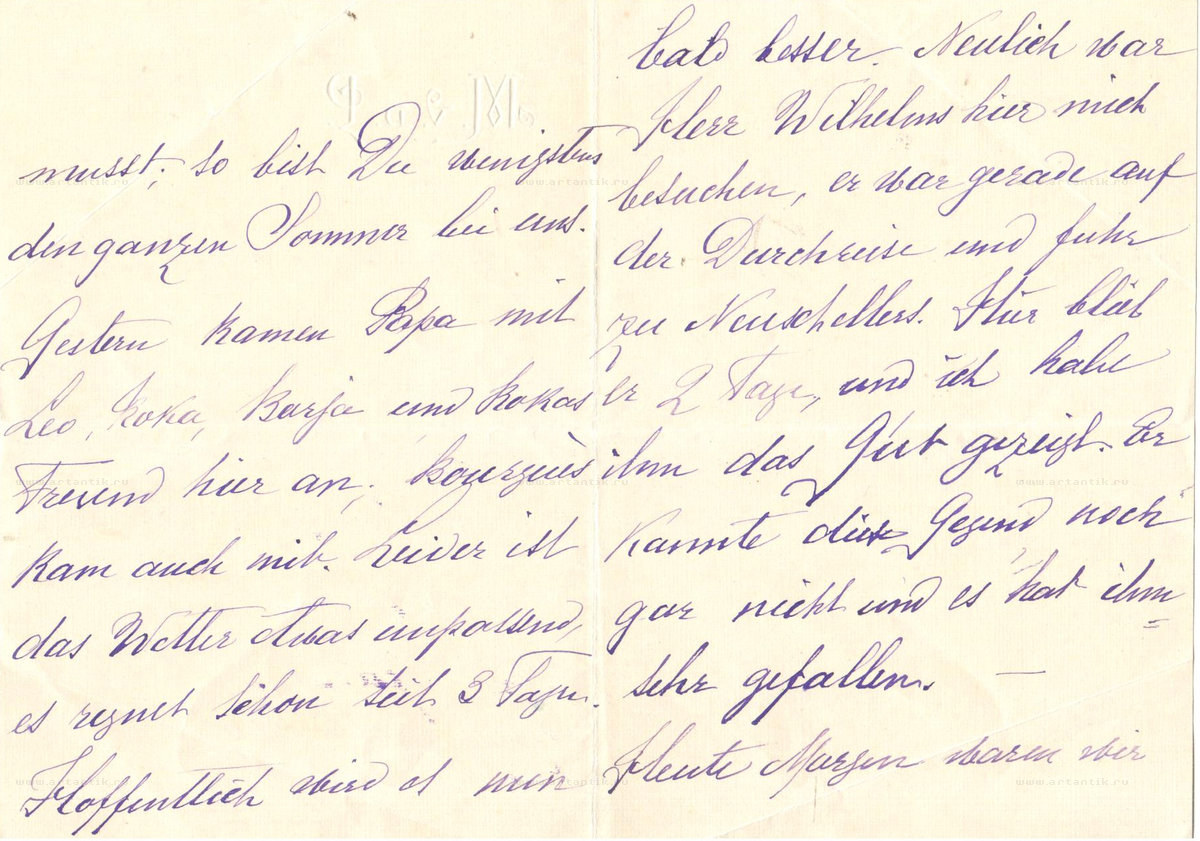 musst; so bist Du wenigstens
den ganzen Sommer bei uns.
Gestern kamen Papa mit
Leo, Koka, Barja und Kokas
Freund hier an;
kam auch mit. Leider ist
das Wetter etwas unpassend,
es regnet schon seit 3 Tagen.
Hoffentlich wird es nun
bald besser. Neulich war
Herr Wilhelms hier mich
besuchen, er war gerade auf
der Durchreise und fuhr
zu Neuschellers. Hier blieb
er 2 Tage, und ich habe
ihm das Gut gezeigt. Er
kannte diese Gegend noch
gar nicht und es hat ihm
sehr gefallen. —
Heute Morgen waren wir
www.artantik.ru